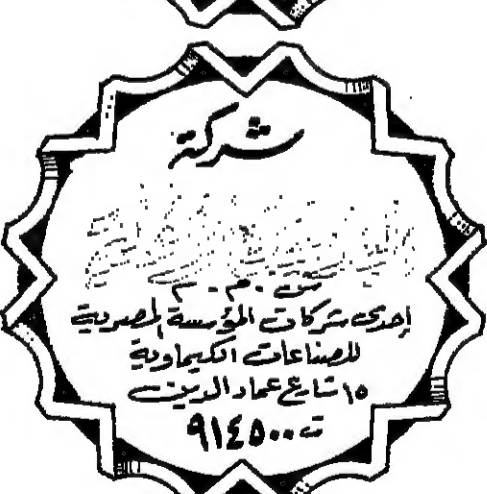 شركة
ش.م.م
إحدى شركات المؤسسة المصرية
للصناعات الكيماوية
١٥ شارع عماد الدين
ت ٩١٤٥٠٠